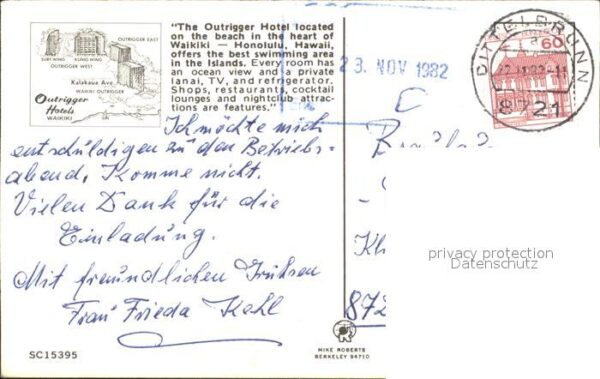 "The Outrigger Hotel located
on the beach in the heart of
Waikiki — Honolulu, Hawaii,
offers the best swimming area
in the Islands. Every room has
an ocean view and a private
lanai, TV, and refrigerator.
Shops, restaurants, cocktail
lounges and nightclub attrac-
tions are features."
OUTRIGGER EAST
SURF WING
OUTRIGGER WEST
Kalakaua Ave.
WAIKIKI OUTRIGGER
Outrigger
Hotels
WAIKIKI
Ich möchte mich
entschuldigen zu den Betriebs-
abend, Komme nicht.
Vielen Dank für die
Einladung.
Mit freundlichen Grüßen
Frau Frieda Kehl
SC15395
MIKE ROBERTS
BERKELEY 94710
23. NOV 1982
60
DITTELBRUNN
8721
Kl
872
privacy protection
Datenschutz